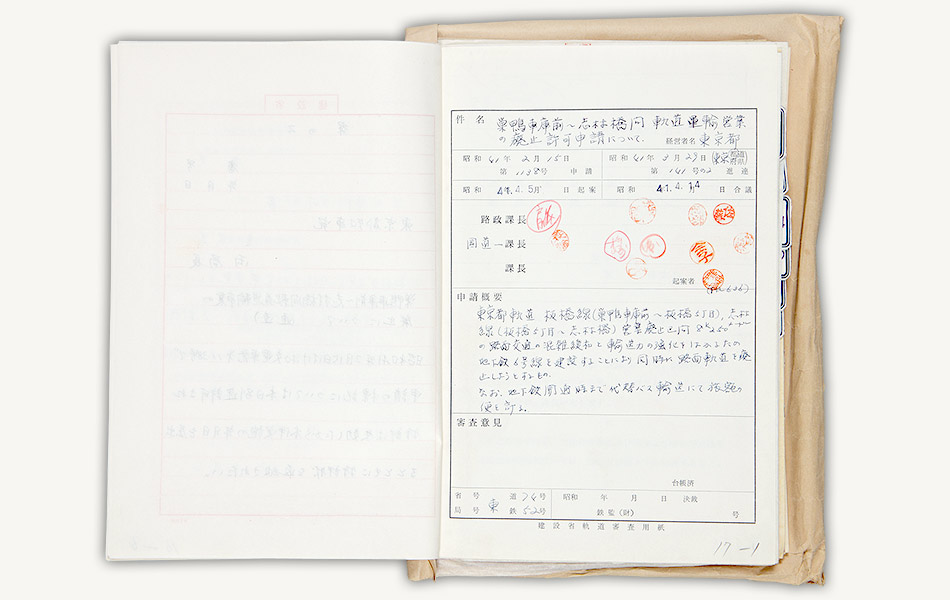 件名 巣鴨車庫前～志村橋間 軌道運輸営業
の廃止許可申請について. 経営者名 東京都
昭和41年2月15日 昭和41年3月29日(東京都道府県)
第1138号 申請 第141号の2 進達
昭和41.4.5日起案 昭和41.4.14日合議
路政課長
国道一課長
課長
起案者
申請概要
東京都軌道 板橋線(巣鴨車庫前～板橋5丁目), 志村
線(板橋5丁目～志村橋)営業廃止区間
の路面交通の混雑緩和と輸送力の強化をはかるため
地下鉄6号線を建設することにより同時に路面軌道を廃
止しようとするもの.
なお、地下鉄開通時まで代替バス輸送にて旅客の
便を計る.
審査意見
台帳済
省号 道74号 昭和 年 月 日 決裁
局号 東鉄52号 鉄監(財) 号
建設省軌道審査用紙
17-1